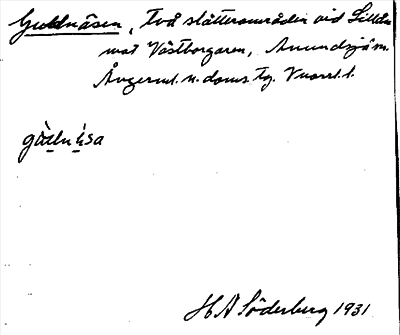 Guldnäsen, Två slåtterområden vid Lillån
mot Västborgaren, Anundsjö sn.
Ångerml. n. doms. tg.
gö̀ln ńsa
H A Söderberg 1931